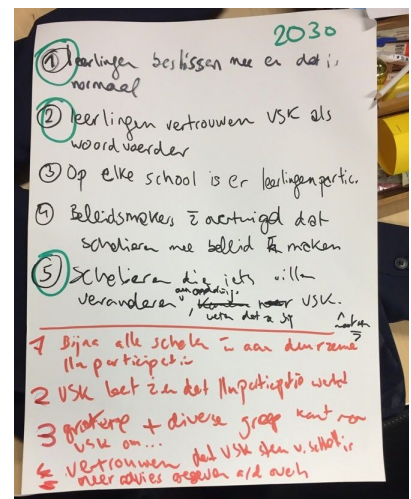 2030
① leerlingen beslissen mee en dat is
normaal
② leerlingen vertrouwen VSK als
woordvoerder
③ Op elke school is er leerlingenpartic.
④ Beleidsmakers z overtuigd dat
scholieren mee beleid maken
⑤ Scholieren die iets willen
veranderen, VSK.
weten dat ze bij
1 Bijna alle scholen z aan duurzame
lln participatie
2 VSK laat zien dat llnparticipatie werkt
3 grotere + diverse groep kent
VSK om...
4 vertrouwen dat VSK stem v. scholier
meer advies